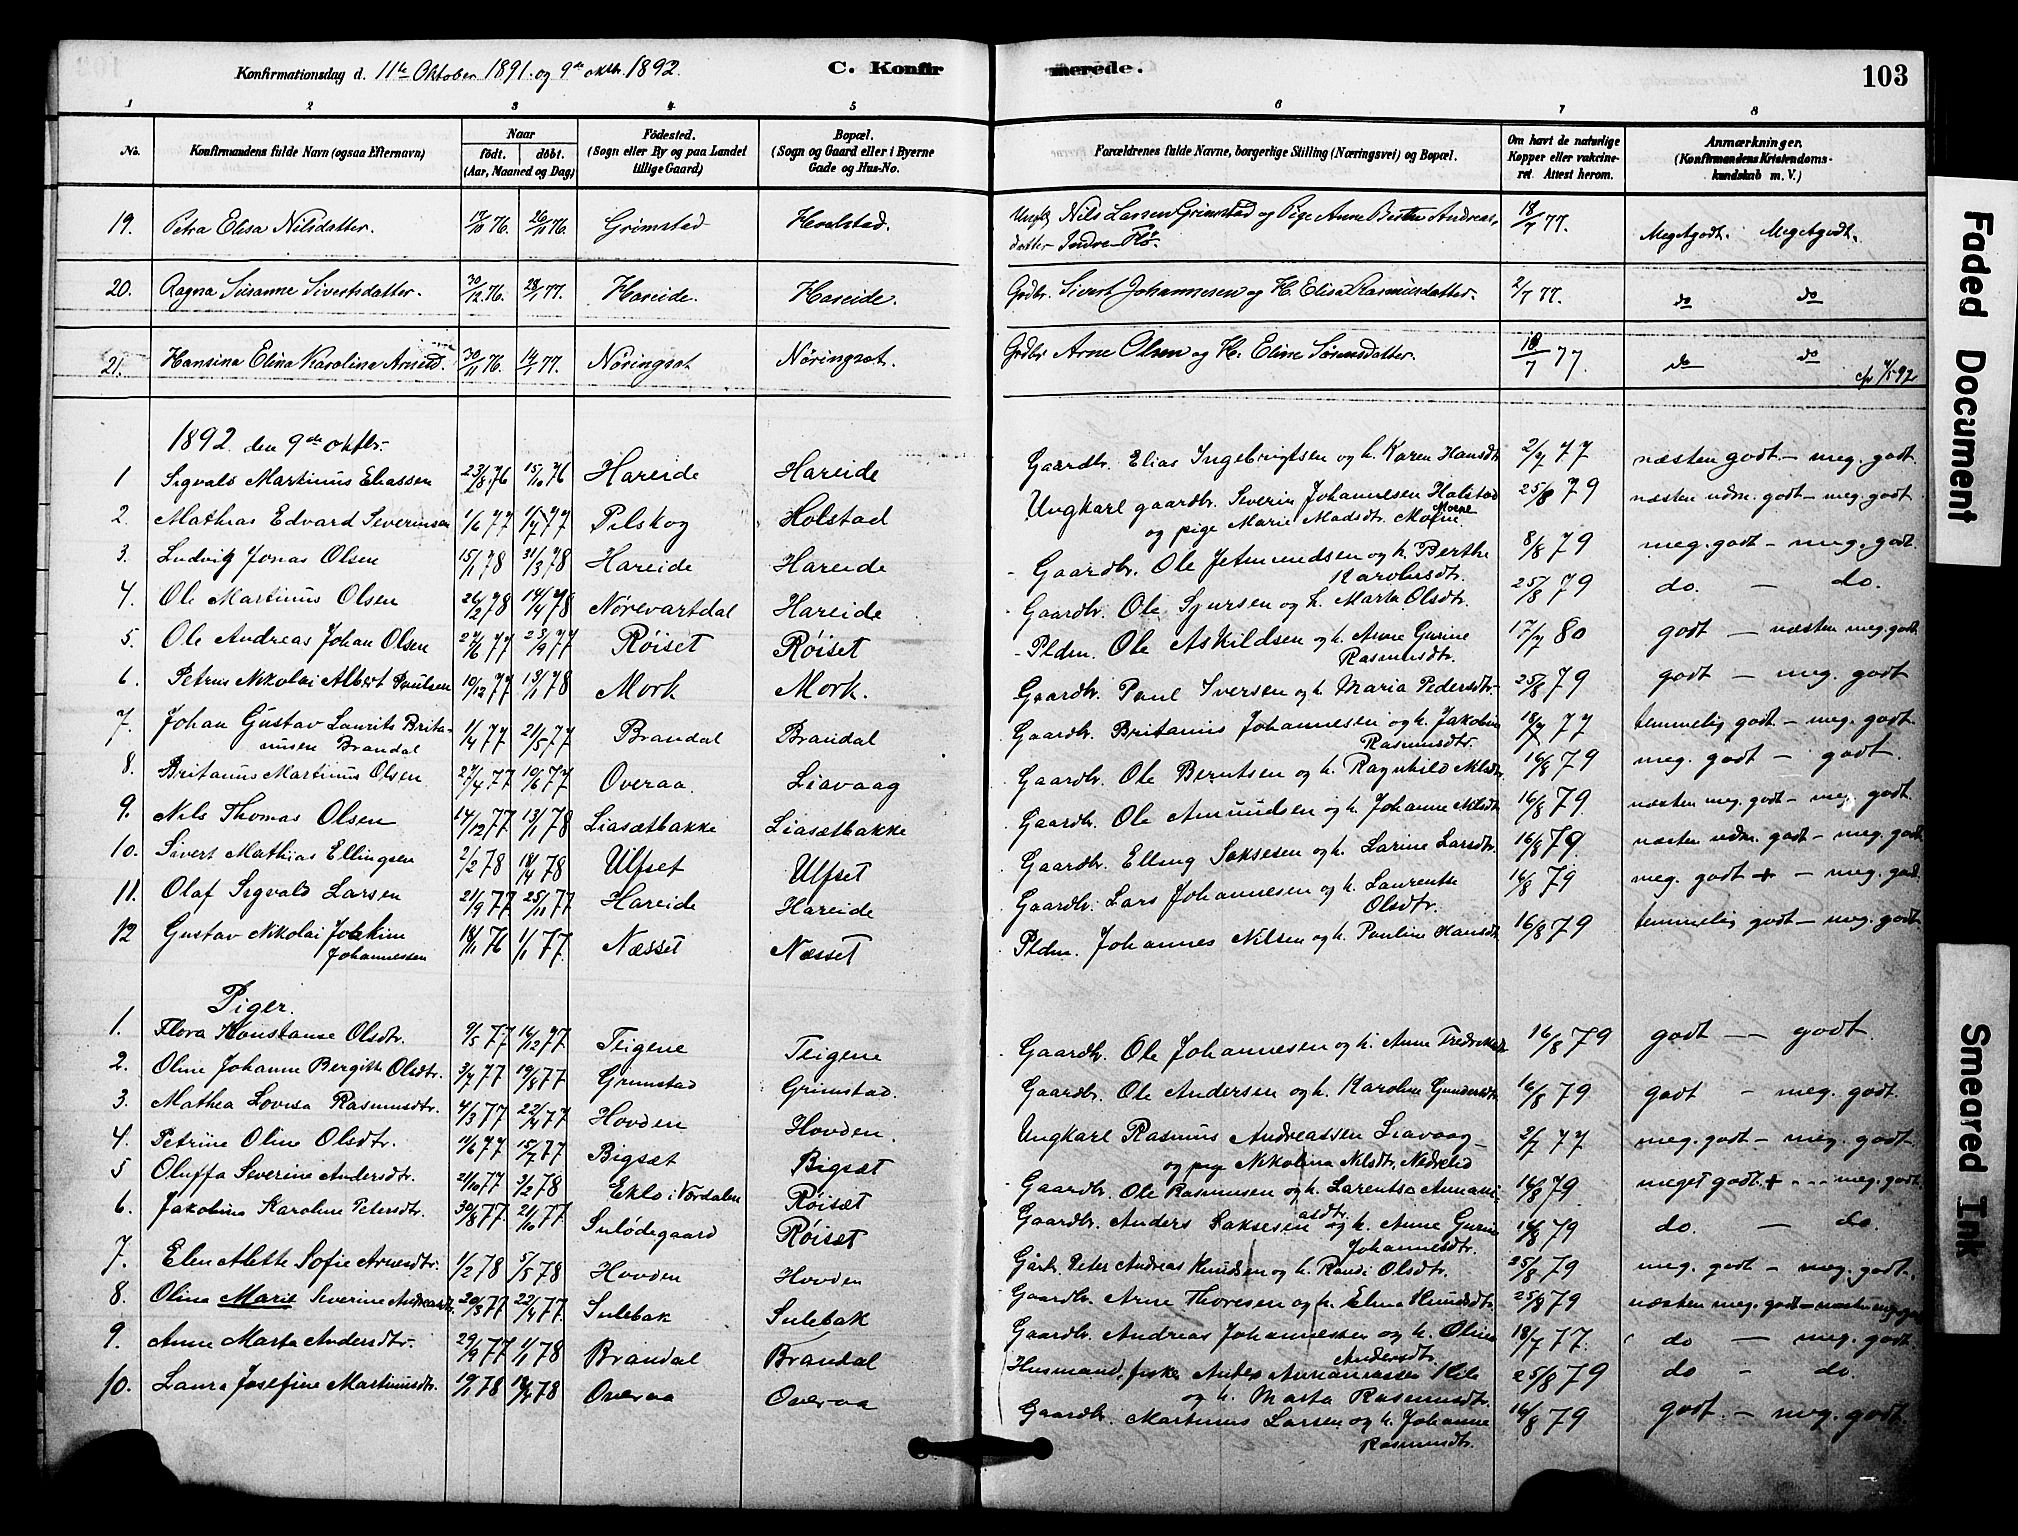 Konfirmationsdag d. 11te Oktober 1891. og 9de oktbr. 1892. C. Konfirmerede. 103
1 2 3 4 5 6 7 8
No. Konfirmandens fulde Navn (ogsaa Efternavn) Naar født. døbt. (Aar, Maaned og Dag) Fødested. (Sogn eller By og paa Landet tillige Gaard) Bopæl. (Sogn og Gaard eller i Byerne Gade og Hus-No. Forældrenes fulde Navne, borgerlige Stilling (Næringsvei) og Bopæl. Om havt de naturlige Kopper eller vakcineret. Attest herom. Anmærkninger. (Konfirmandens Kristendomskundskab m. V.)
19. Petra Elisa Nilsdatter. 17/10 76. 26/11 76. Grimstad Hvalstad. Ungk. Nils Larsen Grimstad og Pige Anne Berthe Andreasdatter Indre-Flø. 18/7 77. Meget godt. Meget godt.
20. Ragna Susanne Sivertsdatter. 30/12 76. 28/1 77. Hareide. Hareide. Grdbr. Sivert Johannesen og H. Elisa Rasmusdatter. 2/7 77. do do
21. Hansina Elina Karolina Arnesd. 30/11 76. 14/1 77. Nøringsæt Nøringsæt. Grdbr Arne Olsen og H. Eline Sørensdatter. 18/7 77. do do
1892 den 9de oktbr.
1 Sigvald Martinus Eliassen 23/8 76 15/10 76 Hareide Hareide Gaardbr. Elias Ingebrigtsen og h. Karen Hansdt. 2/7 77 næsten godt – meg. godt.
2. Mathias Edvard Severinsen 1/6 77 15/7 77 Pilskog Holstad Ungkarl gaardbr. Severin Johannesen Holstad og pige Marie Madsdtr. Morne 25/8 79 næsten udm. godt – meg. godt
3. Ludvig Jonas Olsen 15/1 78 31/3 78 Hareide Hareide Gaardbr. Ole Jetmundsen og h. Berthe Karolusdtr. 8/8 79 meg. godt – meg. godt.
4. Ole Martinus Olsen 26/2 78 14/4 78 Nørevartdal Hareide Gaardbr. Ole Sjursen og h. Marta Olsdtr. 25/8 79 do. – do.
5. Ole Andreas Johan Olsen 27/6 77 23/9 77 Røiset Røiset Pldm. Ole Askildsen og h. Anne Gurine Rasmusdtr. 17/7 80 godt – næsten meg. godt
6. Petrus Nikolai Albert Paulsen 10/12 77 13/1 78 Mork Mork. Gaardbr. Paul Iversen og h. Maria Pedersdtr. 25/8 79 godt – meg. godt
7. Johan Gustav Laurits Britanusen Brandal 1/4 77 21/5 77 Brandal Brandal Gaardbr. Britanus Johannesen og h. Jakobine Rasmusdtr. 18/7 77 temmelig godt – meg. godt.
8. Britanus Martinus Olsen 27/4 77 10/6 77 Overaa. Liavaag Gaardbr. Ole Berntsen og h. Ragnhild Nilsdtr 16/8 79 meg. godt – godt.
9. Nils Thomas Olsen 14/12 77 13/1 78 Liasætbakke Liasætbakke Gaardbr. Ole Amundsen og h. Johanne Nilsdt 16/8 79. næsten meg. godt – meg. godt.
10. Sivert Mathias Ellingsen 2/2 78 14/4 78 Ulfset Ulfset Gaardbr. Elling Saksesen og h. Larine Larsdtr. 16/8 79. næsten udm. godt – meg. godt
11. Olaf Sigvald Larsen 21/9 77 25/11 77 Hareide Hareide Gaardbr. Lars Johannesen og h. Laurentse Olsdtr. 16/8 79 meg. godt + – meg. godt.
12 Gustav Nikolai Joakim Johannessen 18/11 76 1/1 77. Næsset Næsset Pldm. Johannes Nilsen og h. Pauline Hansdt. 16/8 79 temmelig godt – meg. godt
Piger.
1. Flora Konstanse Olsdtr. 9/5 77 16/12 77 Teigene Teigene Gaardbr. Ole Johannesen og h. Anne Fredriksdt 16/8 79 godt – godt
2. Oline Johanne Bergithe Olsdtr. 3/7 77 19/8 77 Grimstad Grimstad. Gaardbr. Ole Andersen og h. Karoline Gundersdt 16/8 79 godt – meg. godt.
3. Mathea Lovisa Rasmusdtr. 4/3 77 22/4 77 Hovden Hovden. Ungkarl Rasmus Andreassen Liavaag og pige Nikolina Nilsdtr. Nedrelid 2/7 77 meg. godt – meg. godt
4. Petrine Oline Olsdtr. 11/6 77 15/7 77 Bigsæt Bigsæt Gaardbr. Ole Rasmusen og h. Larentse Ananiasdtr. 16/8 79. meget godt + – meg. godt
5 Oluffa Severine Andersdtr. 21/10 77 3/2 78 Eklo i Nordalen Røisæt Gaardbr. Anders Saksesen og h. Anne Gurine Johannesdtr. 16/8 79 do. – do.
6. Jakobine Karoline Petersdtr. 30/8 77 21/10 77 Sulødegaard Røiset Gårb. Peter Andreas Knudsen og h. Randi Olsdtr. 25/8 79 meg. godt – meg. godt.
7. Elen Alette Sofie Arnesdtr. 1/2 78 5/5 78 Hovden Hovden Gaardbr. Arne Thoresen og h. Elena Knudsdtr 25/8 79 næsten meg. godt – næsten meg. godt
8. Olina Marie Severine Andreasdtr. 20/3 77 22/4 77. Sulebak Sulebak Gaardbr. Andreas Johannessen og h. Oline Andersdtr. 18/7 77. do – meg. godt.
9. Anne Marta Andersdtr. 29/9 77 1/1 78 Brandal Brandal Husmand, fisker Anders Ananiassen og h. Marta Rasmusdtr. 25/8 79 do – do.
10. Laura Josefine Martinusdtr. 19/1 78 78 Overaa Overaa Gaardbr. Martinus Larsen og h. Johanne Rasmusdtr. 16/8 79 godt. – meg. godt.
Faded Document
Smeared Ink